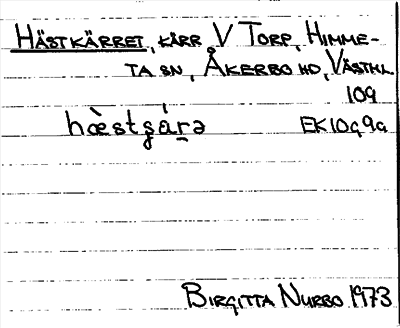 HÄSTKÄRRET, KÄRR V TORP, HIMME-
TA SN, ÅKERBO HD, VÄSTML.
109
hæ̀stʂáṟə EK10g9a
BIRGITTA NURBO 1973